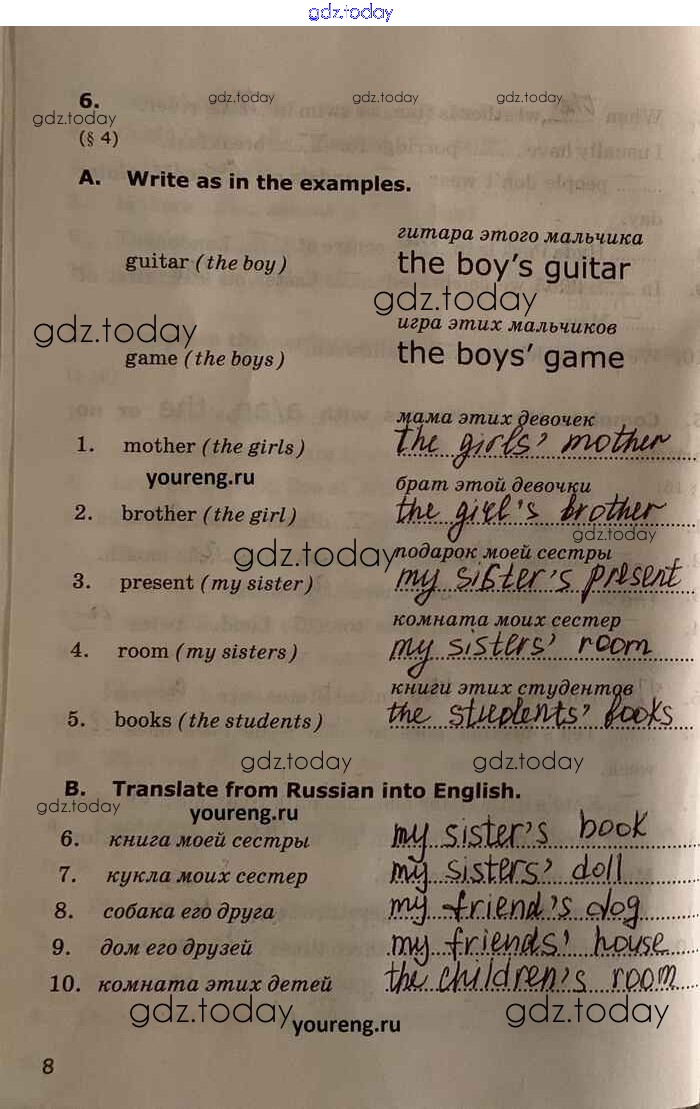 gdz.today
6.
gdz.today gdz.today gdz.today
gdz.today
(§ 4)
A. Write as in the examples.
гитара этого мальчика
guitar (the boy) the boy's guitar
gdz.today
игра этих мальчиков
gdz.today
game (the boys) the boys' game
мама этих девочек
1. mother (the girls) the girls' mother
youreng.ru
брат этой девочки
2. brother (the girl) the girl's brother
gdz.today
gdz.today
подарок моей сестры
3. present (my sister) my sister's present
комната моих сестер
4. room (my sisters) my sisters' room
книги этих студентов
5. books (the students) the students' books
gdz.today gdz.today
B. Translate from Russian into English.
gdz.today
youreng.ru
6. книга моей сестры my sister's book
7. кукла моих сестер my sisters' doll
8. собака его друга my friend's dog
9. дом его друзей my friends' house
10. комната этих детей the children's room
gdz.today gdz.today
youreng.ru
8